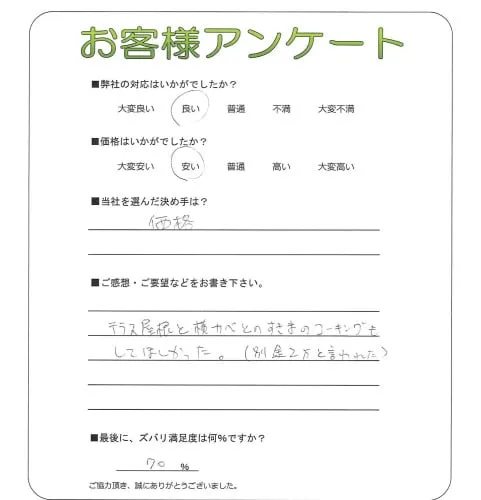 お客様アンケート
■弊社の対応はいかがでしたか？
大変良い 良い 普通 不満 大変不満
■価格はいかがでしたか？
大変安い 安い 普通 高い 大変高い
■当社を選んだ決め手は？
価格
■ご感想・ご要望などをお書き下さい。
テラス屋根と横カベとのすきまのコーキングも
してほしかった。（別途2万と言われた）
■最後に、ズバリ満足度は何％ですか？
70 ％
ご協力頂き、誠にありがとうございました。